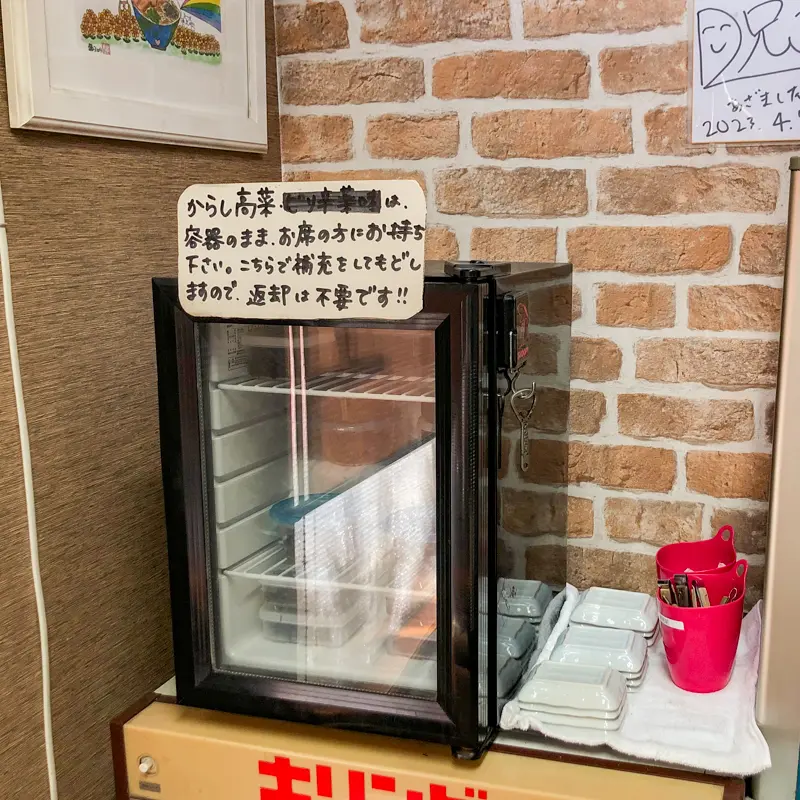 からし高菜・ピリ辛薬味は、
容器のまま、お席の方にお持ち
下さい。こちらで補充をしてもどし
ますので、返却は不要です!!
兄
あざました
2023.4.
キリンビ